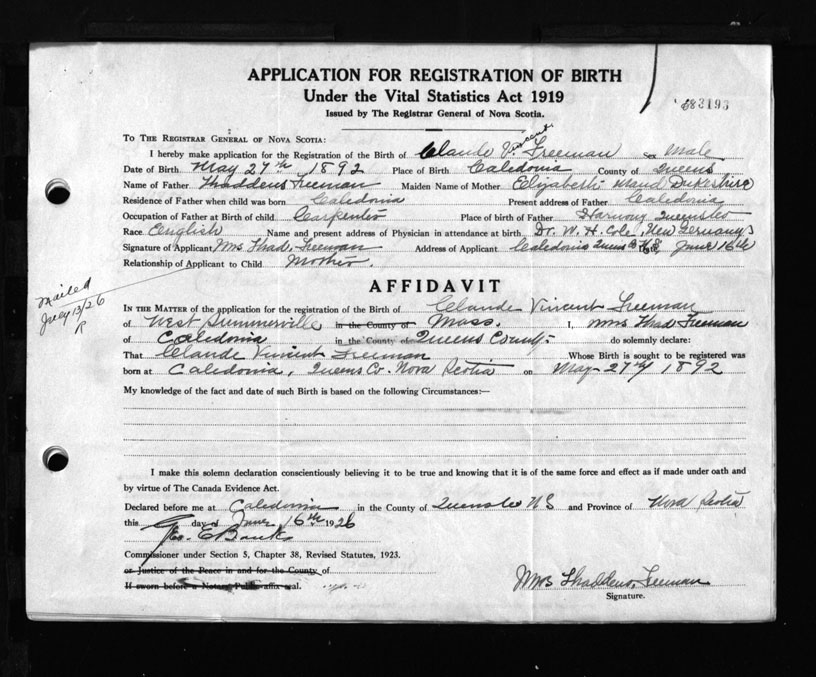 APPLICATION FOR REGISTRATION OF BIRTH
Under the Vital Statistics Act 1919
Issued by The Registrar General of Nova Scotia.
TO THE REGISTRAR GENERAL OF NOVA SCOTIA:
I hereby make application for the Registration of the Birth of Claude Vincent Freeman Sex Male
Date of Birth May 27th 1892 Place of Birth Caledonia County of Queens
Name of Father Thaddens Freeman Maiden Name of Mother Elizabeth Maud Dukeshire
Residence of Father when child was born Caledonia Present address of Father Caledonia
Occupation of Father at Birth of child Carpenter Place of birth of Father Harmony Queens Co
Race English Name and present address of Physician in attendance at birth Dr. W. H. Cole, New Germany
Signature of Applicant Mrs Thad. Freeman Address of Applicant Caledonia Queens Co N.S June 16th
Relationship of Applicant to Child Mother.
Mailed
July 13/26
R
AFFIDAVIT
IN THE MATTER of the application for the registration of the Birth of Claude Vincent Freeman
of West Summerville in the County of Mass. I, Mrs Thad Freeman
of Caledonia in the County of Queens County do solemnly declare:
That Claude Vincent Freeman Whose Birth is sought to be registered was
born at Caledonia, Queens Co. Nova Scotia on May 27th 1892
My knowledge of the fact and date of such Birth is based on the following Circumstances:—
I make this solemn declaration conscientiously believing it to be true and knowing that it is of the same force and effect as if made under oath and
by virtue of The Canada Evidence Act.
Declared before me at Caledonia in the County of Queens Co N S and Province of Nova Scotia
this day of June 16th 1926
Geo. E Banks
Commissioner under Section 5, Chapter 38, Revised Statutes, 1923.
or Justice of the Peace in and for the County of
If sworn before a Notary Public affix seal.
Mrs Thaddens Freeman
Signature.